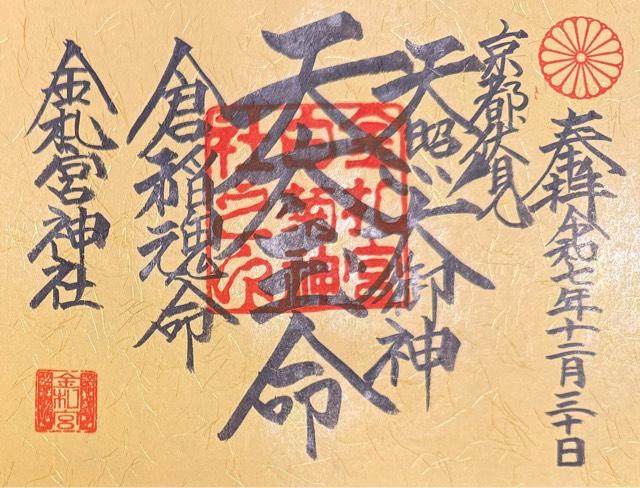 奉拝
令和七年十二月三十日
京都伏見
天照大御神
天太玉命
倉稲魂命
金札宮神社
金札宮
白菊神
社之印
金札宮